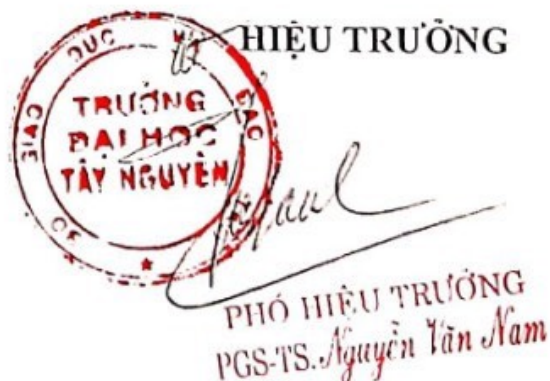 HIỆU TRƯỞNG
BỘ GIÁO DỤC VÀ ĐÀO
TRƯỜNG
ĐẠI HỌC
TÂY NGUYÊN
PHÓ HIỆU TRƯỞNG
PGS-TS. Nguyễn Văn Nam